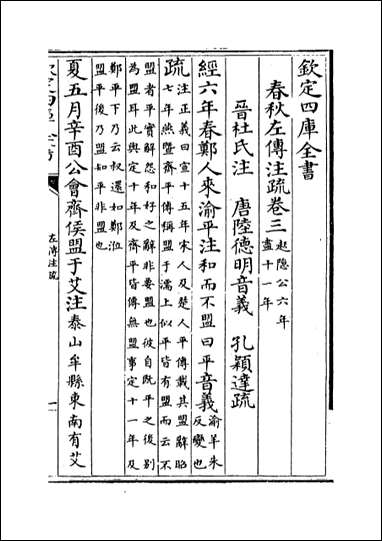 欽定四庫全書
春秋左傳注疏卷三 起隱公六年
盡十一年
晉杜氏注 唐陸德明音義 孔穎達疏
經六年春鄭人來渝平注和而不盟曰平音義 渝羊朱
反變也
疏 注正義曰宣十五年宋人及楚人平傳載其盟辭昭
七年燕暨齊平傳稱盟于濡上似平皆有盟而云不
盟者平實解怨和好之辭非要盟也彼自既平之後別
為盟耳此與定十年及齊平皆傳無盟事定十一年及
鄭平下乃云叔還如鄭涖
盟平後乃盟知平非盟也
夏五月辛酉公會齊侯盟于艾注泰山牟縣東南有艾
左傳注疏